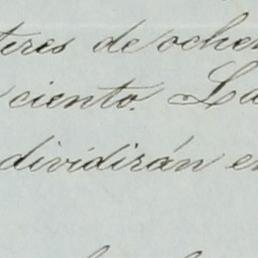 teres de ochen
ciento. La
dividirán en